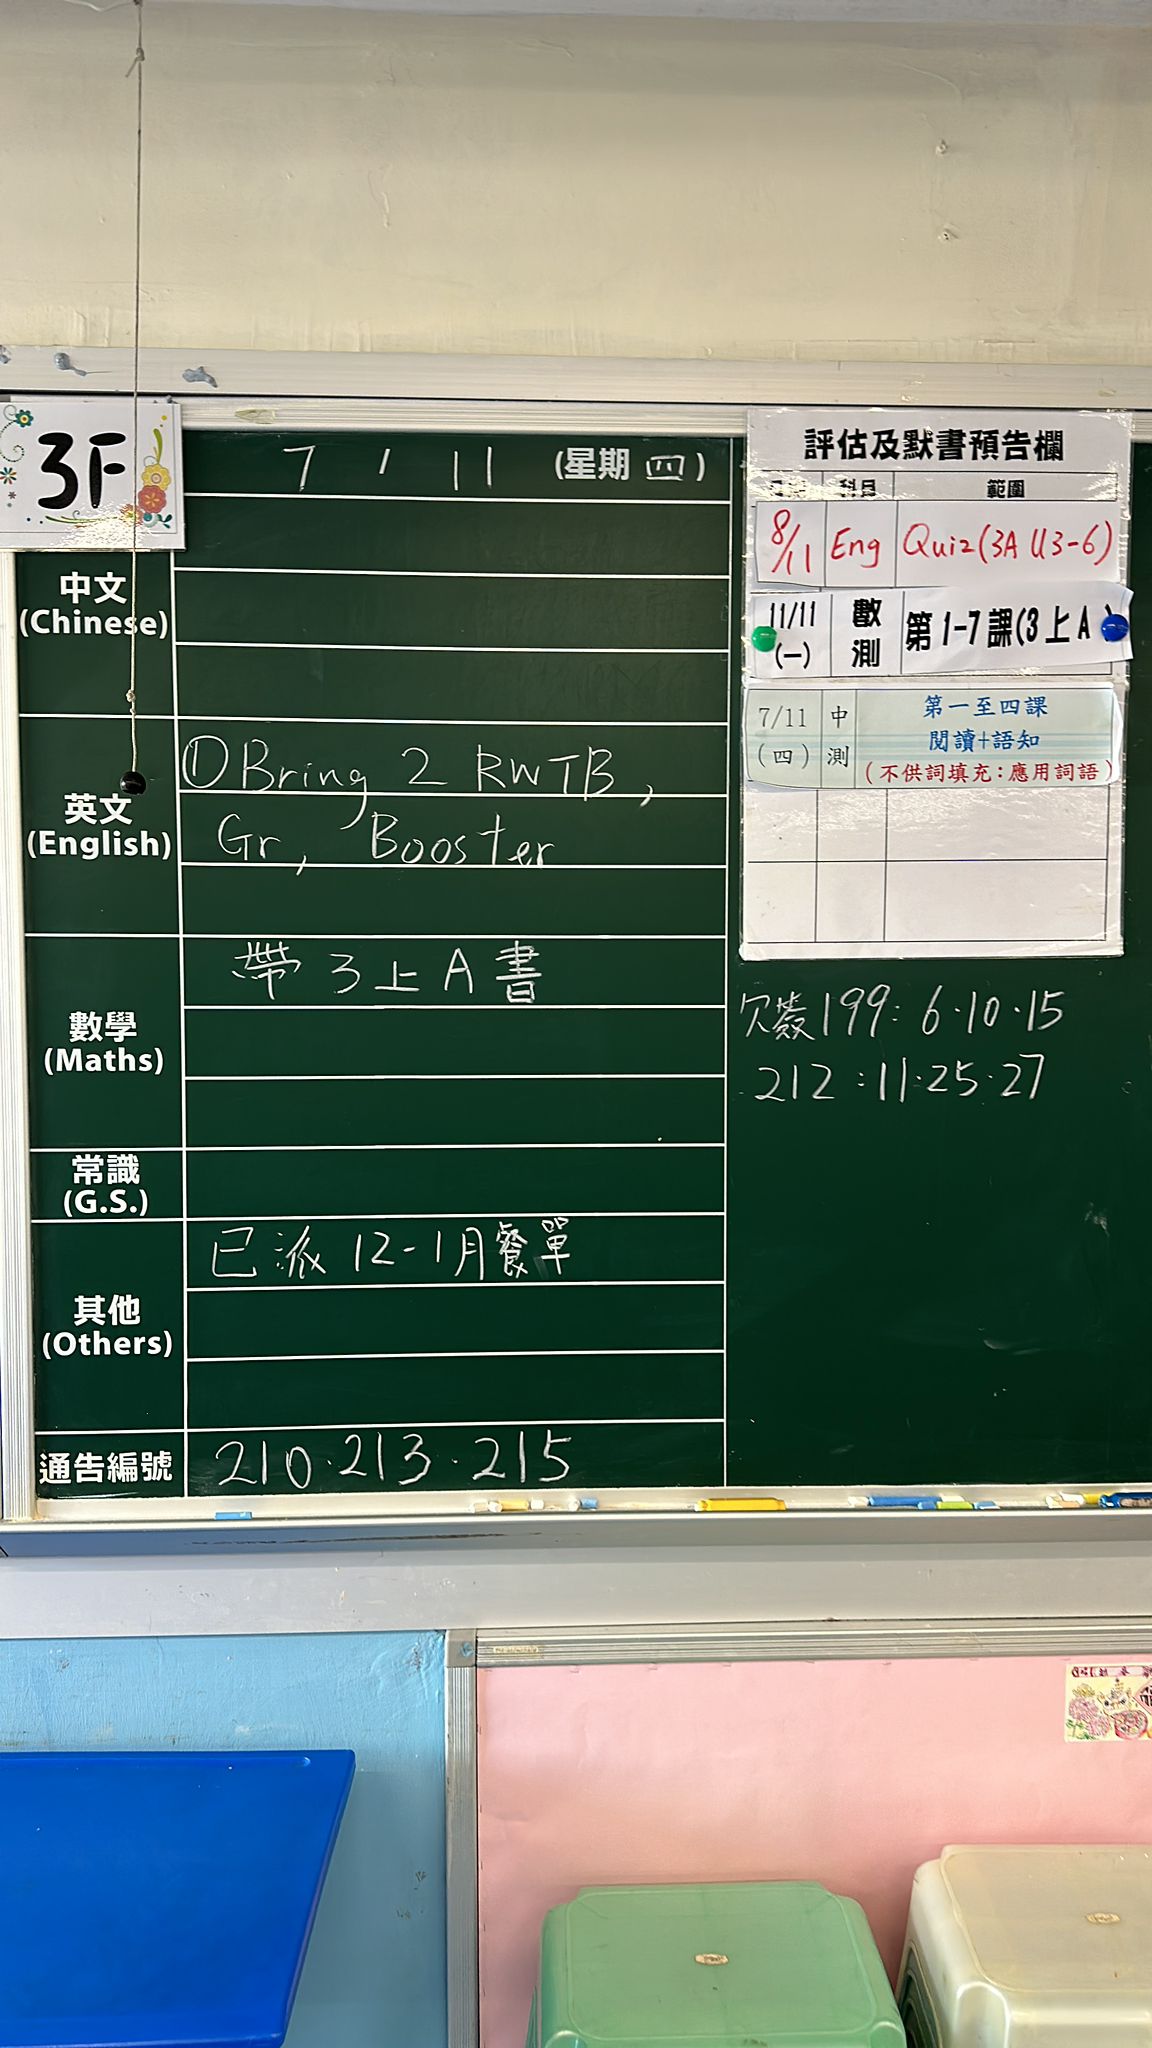 3F
7 / 11 (星期 四)
中文
(Chinese)
英文
(English)
① Bring 2 RWTB,
Gr, Booster
數學
(Maths)
帶 3上A書
常識
(G.S.)
其他
(Others)
已派 12-1月餐單
通告編號
210·213·215
評估及默書預告欄
科目 範圍
8/11 Eng Quiz(3A U3-6)
11/11
(一)
數
測
第 1-7 課(3 上 A
7/11
(四)
中
測
第一至四課
閱讀+語知
(不供詞填充:應用詞語)
欠簽199: 6·10·15
212:11·25·27